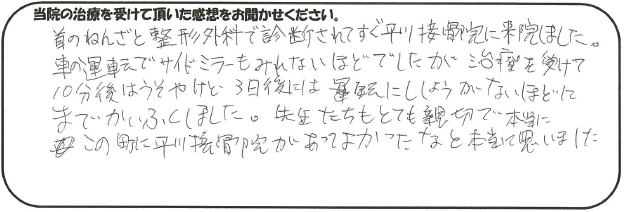 当院の治療を受けて頂いた感想をお聞かせください。
首のねんざと整形外科で診断されてすぐ平川接骨院に来院しました。
車の運転でサイドミラーもみれないほどでしたが 治療を受けて
10分後はうそやけど 3日後には 運転にししょうがないほどに
までかいふくしました。先生たちもとても親切で本当に
この町に平川接骨院があってよかったなと本当に思いました